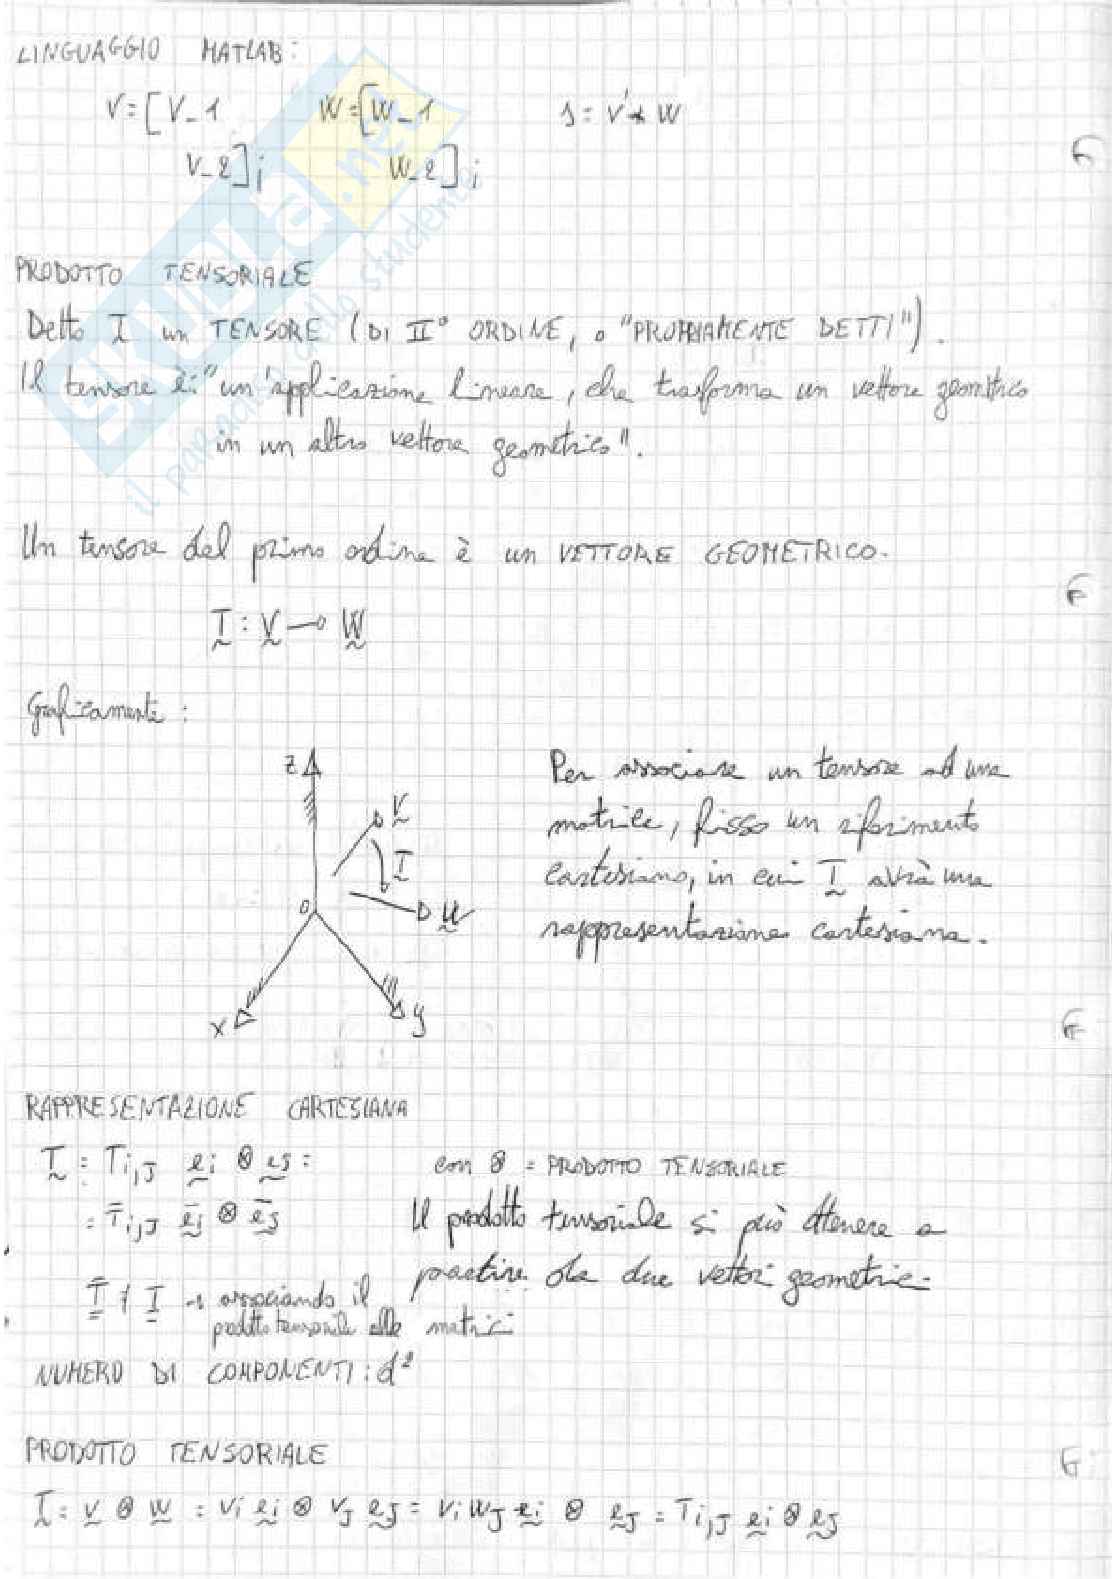 LINGUAGGIO MATLAB:
V=[V_1 W=[W_1 s = v'* W
V_2]; W_2];
PRODOTTO TENSORIALE
Detto T un TENSORE (DI II° ORDINE, o "PROPRIAMENTE DETTI").
Il tensore è: "un'applicazione lineare, che trasforma un vettore geometrico
in un altro vettore geometrico".
Un tensore del primo ordine è un VETTORE GEOMETRICO.
T : V → W
Graficamente:
z
V
T
O
W
x
y
Per associare un tensore ad una
matrice, fisso un riferimento
cartesiano, in cui T avrà una
rappresentazione cartesiana.
RAPPRESENTAZIONE CARTESIANA
T = Ti,J ei ⊗ eJ = con ⊗ = PRODOTTO TENSORIALE
= T̄i,J ēi ⊗ ēJ Il prodotto tensoriale si può ottenere a
partire da due vettori geometrici.
T̄ ≠ T → associando il
prodotto tensoriale alle matrici
NUMERO DI COMPONENTI: d²
PRODOTTO TENSORIALE
T = v ⊗ w = vi ei ⊗ vJ eJ = vi wJ ei ⊗ eJ = Ti,J ei ⊗ eJ
SKUOLA.net
il paradiso dello studente